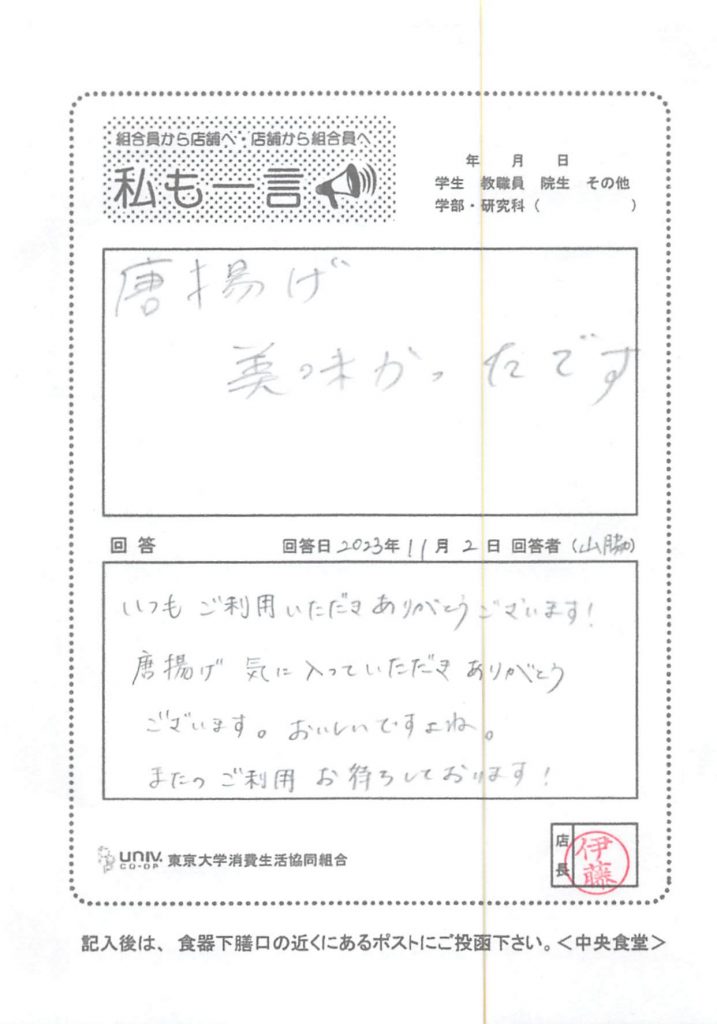 組合員から店舗へ・店舗から組合員へ
私も一言
年 月 日
学生 教職員 院生 その他
学部・研究科（ ）
唐揚げ
美味かったです
回答 回答日 2023年 11月 2日 回答者（山脇）
いつも ご利用いただき ありがとうございます！
唐揚げ 気に入っていただき ありがとう
ございます。おいしいですよね。
またの ご利用 お待ちしております！
UNIV. CO-OP 東京大学消費生活協同組合
店長 伊藤
記入後は、食器下膳口の近くにあるポストにご投函下さい。＜中央食堂＞